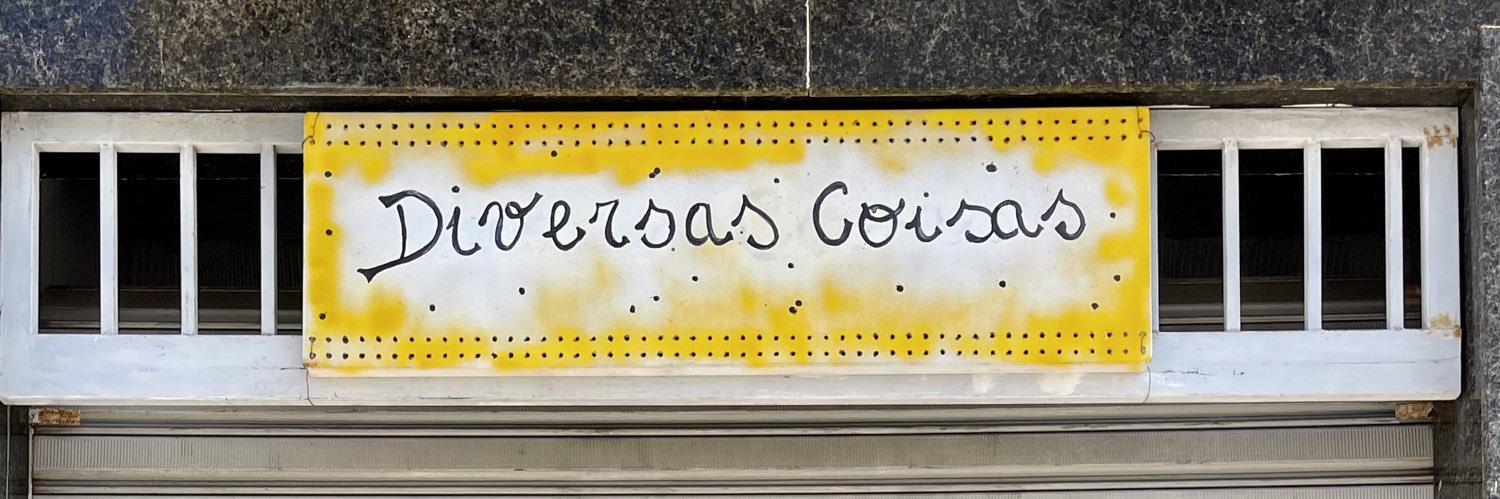 Diversas Coisas